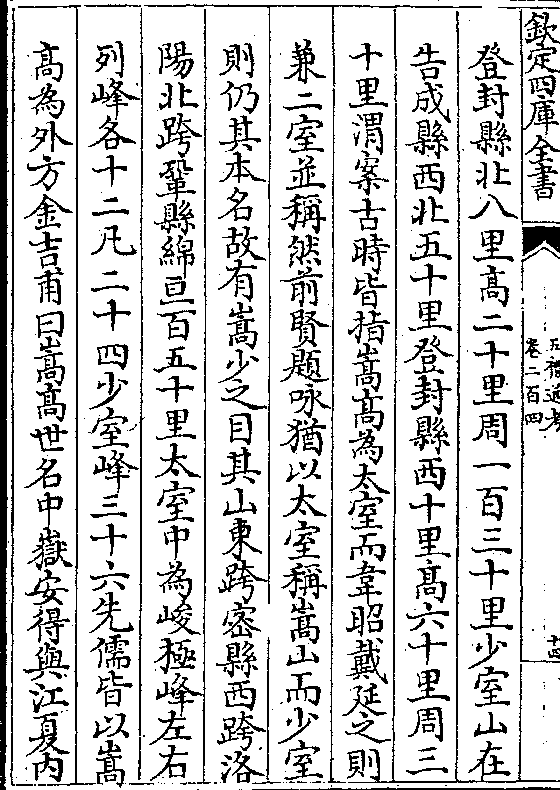 欽定四庫全書
五禮通考
卷二百四
十四
登封縣北八里髙二十里周一百三十里少室山在
告成縣西北五十里登封縣西十里髙六十里周三
十里渭案古時皆指嵩髙為太室而韋昭戴延之則
兼二室並稱然前賢題咏猶以太室稱嵩山而少室
則仍其本名故有嵩少之目其山東跨密縣西跨洛
陽北跨鞏縣綿亘百五十里太室中為峻極峰左右
列峰各十二凡二十四少室峰三十六先儒皆以嵩
髙為外方金吉甫曰嵩髙世名中嶽安得與江夏内